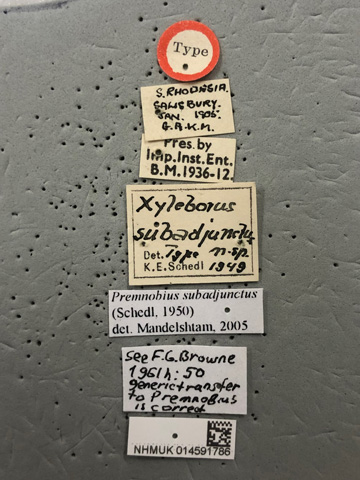 Type
S. RHODESIA.
SALISBURY.
JAN. 1905.
G.A.K.M.
Pres. by
Imp. Inst. Ent.
B.M. 1936-12.
Xyleborus
subadjunctus
Det. Type n.sp.
K.E. Schedl 1949
Premnobius subadjunctus
(Schedl, 1950)
det. Mandelshtam, 2005
See F.G. Browne
1961h: 50
generic transfer
to Premnobius
is correct
NHMUK 014591786